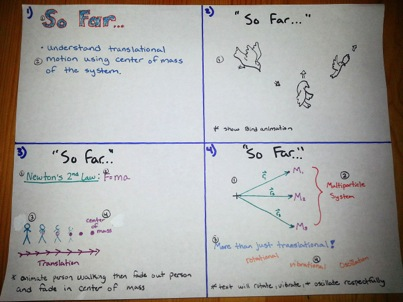 1)
So Far...
• understand translational
② motion using center of mass
of the system.
2)
"So Far..."
①
* show Bird animation
3)
"So Far..."
① Newton's 2nd Law: F=ma
③
④
center of mass
Translation
* animate person walking then fade out person
and fade in center of mass
4)
"So Far..."
①
M₁
②
M₂
Multiparticle
System
M₃
③ More than just translational!
rotational
vibrational
④
Oscillation
* text will rotate, vibrate, + oscillate respectfully